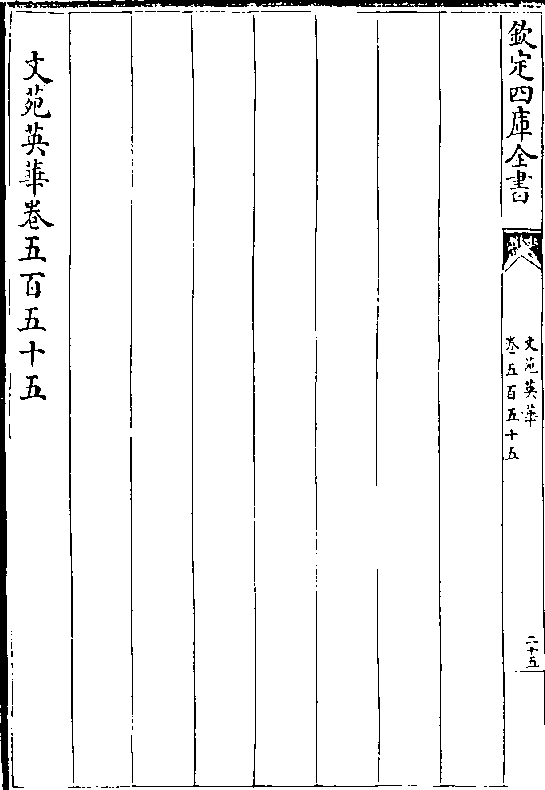 欽定四庫全書
文苑英華
卷五百五十五
二十五
文苑英華卷五百五十五